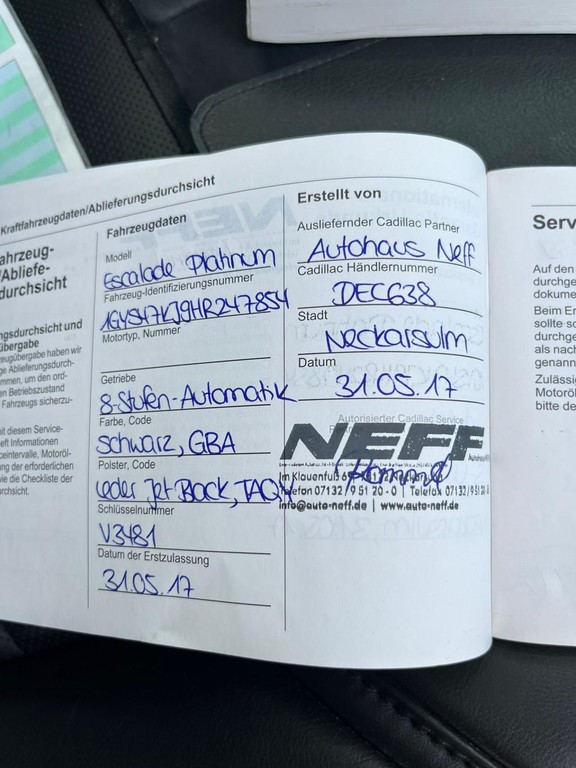 Kraftfahrzeugdaten/Ablieferungsdurchsicht
ahrzeug-
/Abliefe-
durchsicht
ngsdurchsicht und
übergabe
eugübergabe haben wir
ge Ablieferungsdurch-
mmen, um den ord-
en Betriebszustand
Fahrzeugs sicherzu-
it diesem Service-
eft Informationen
ceintervalle, Motoröl-
ng der erforderlichen
vie die Checkliste der
rchsicht.
Fahrzeugdaten
Modell
Escalade Platinum
Fahrzeug-Identifizierungsnummer
1GYS47KJ9HR247854
Motortyp, Nummer
Getriebe
8-Stufen-Automatik
Farbe, Code
Schwarz, GBA
Polster, Code
Leder Jet Black,
Schlüsselnummer
V3481
Datum der Erstzulassung
31.05.17
Erstellt von
Ausliefernder Cadillac Partner
Autohaus Neff
Cadillac Händlernummer
DEC638
Stadt
Neckarsulm
Datum
31.05.17
Autorisierter Cadillac Service
NEFF
Im Klauenfuß
Telefon 07132/9 51 20 - 0 | Telefax 07132/9 51 20
info@auto-neff.de | www.auto-neff.de
Serv
Auf den
durchge
dokume
Beim Er
sollte sc
durchge
als nach
genann
Zulässig
Motoröl
bitte de